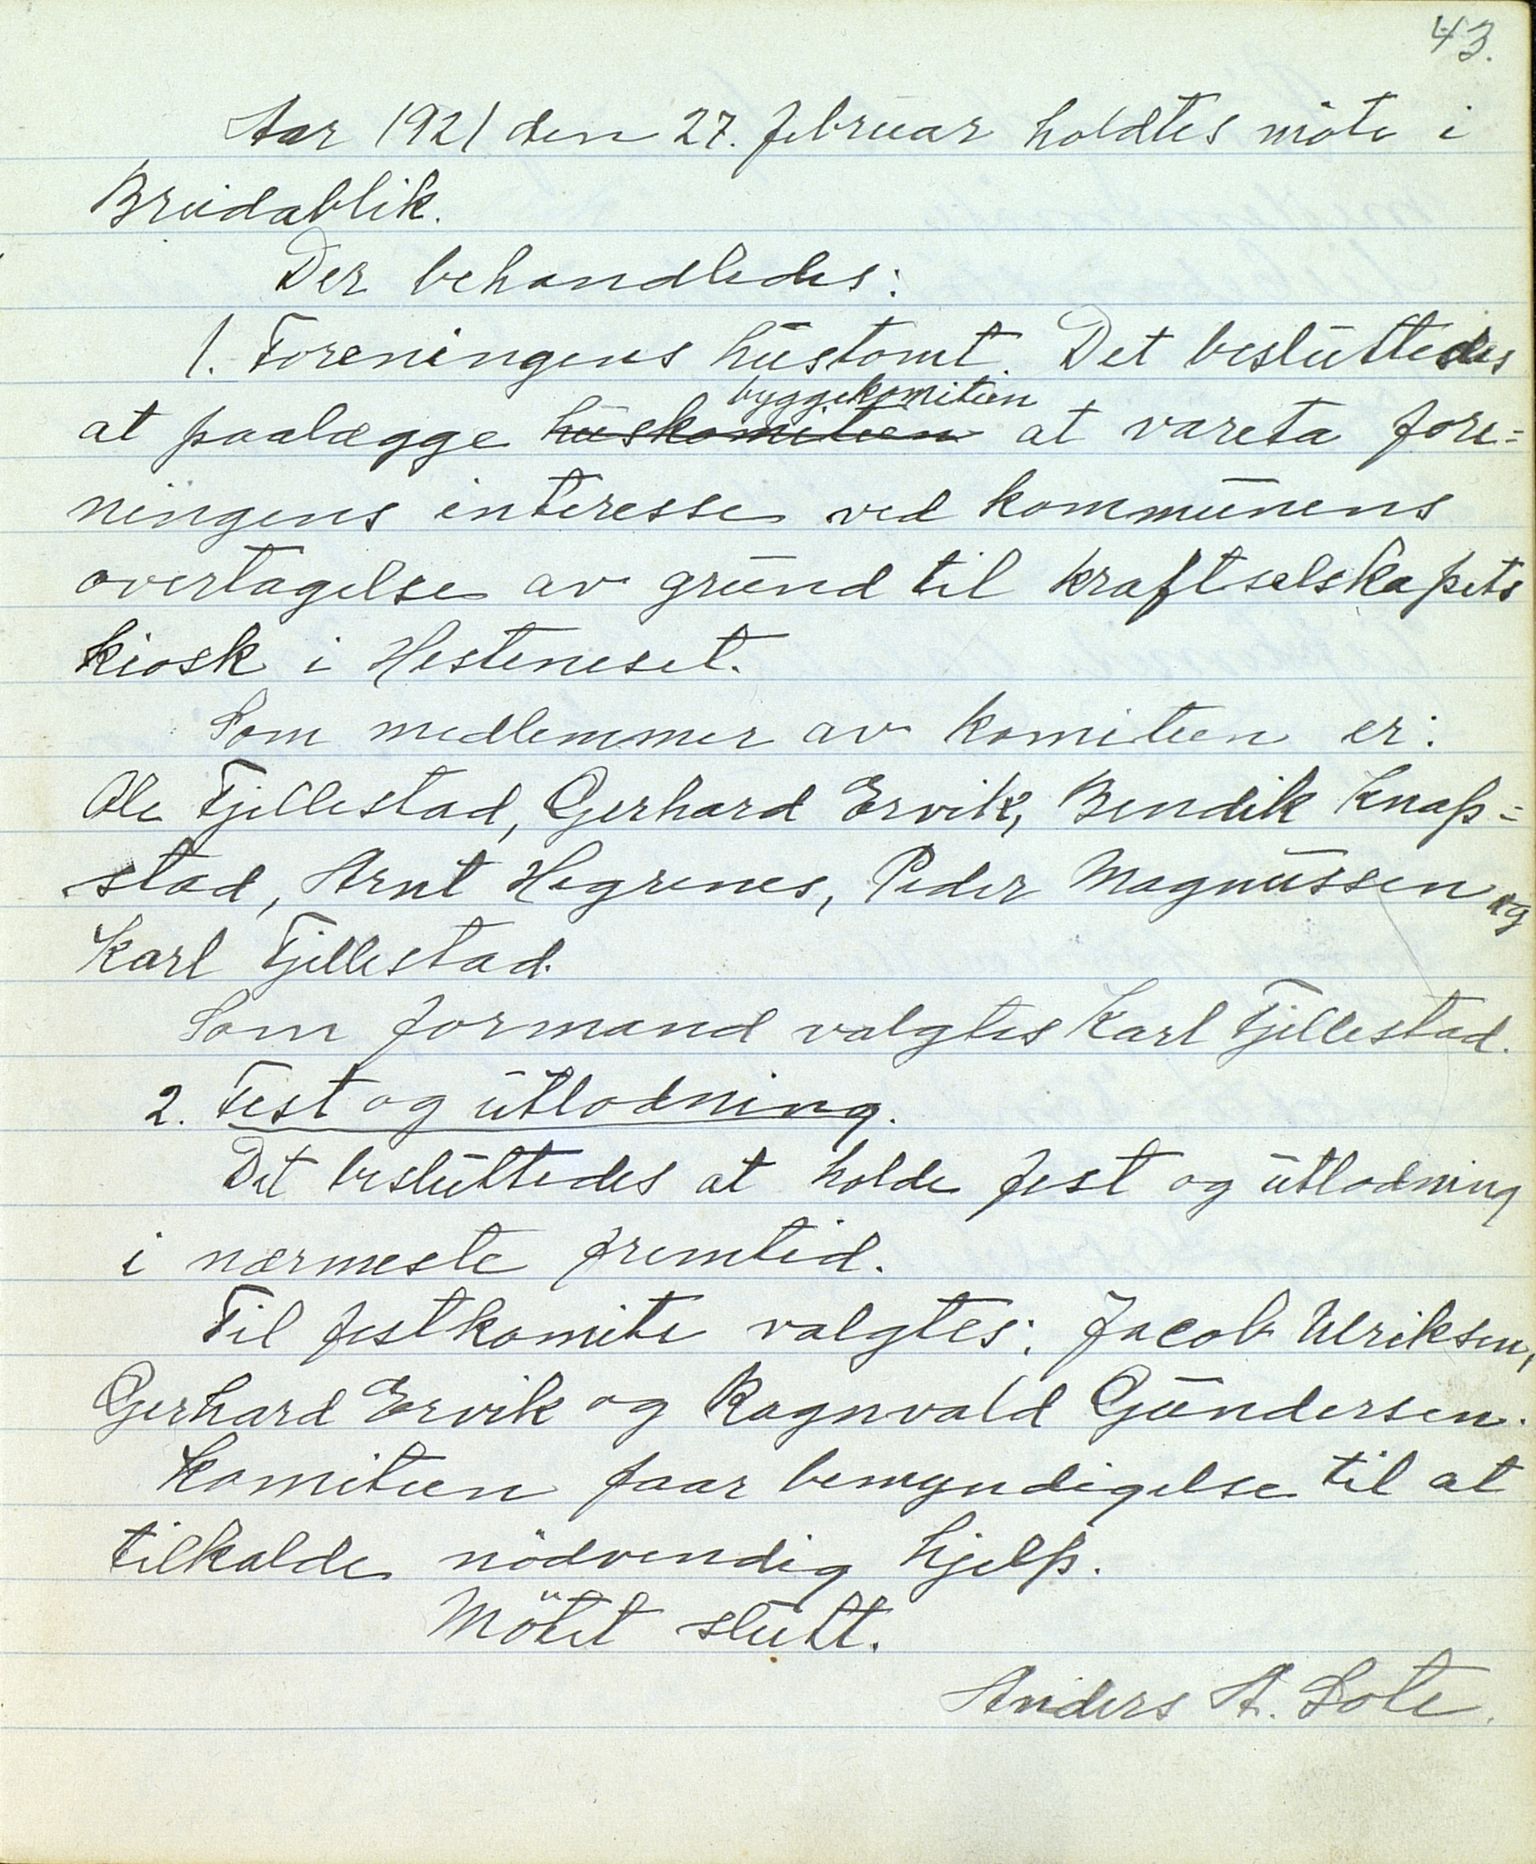 43.
Aar 1921 den 27. februar holdtes möte i
Breidablik.
Der behandledes:
1. Foreningens hustomt. Det besluttedes
byggekomiteen
at paalægge huskomiteen at vareta fore=
ningens interesse ved kommunens
overtagelse av grund til kraftselskapets
kiosk i Hesteneset.
Som medlemmer av komiteen er:
Ole Fjellestad, Gerhard Ervik, Bendik Knap=
stad, Arnt Hegrenes, Peder Magnussen og
Karl Fjellestad.
Som formand valgtes Karl Fjellestad.
2. Fest og utlodning.
Det besluttedes at holde fest og utlodning
i nærmeste fremtid.
Til festkomite valgtes: Jacob Ulriksen,
Gerhard Ervik og Ragnvald Gundersen.
Komiteen faar bemyndigelse til at
tilkalde nödvendig hjelp.
Mötet slutt.
Anders A. Lote.